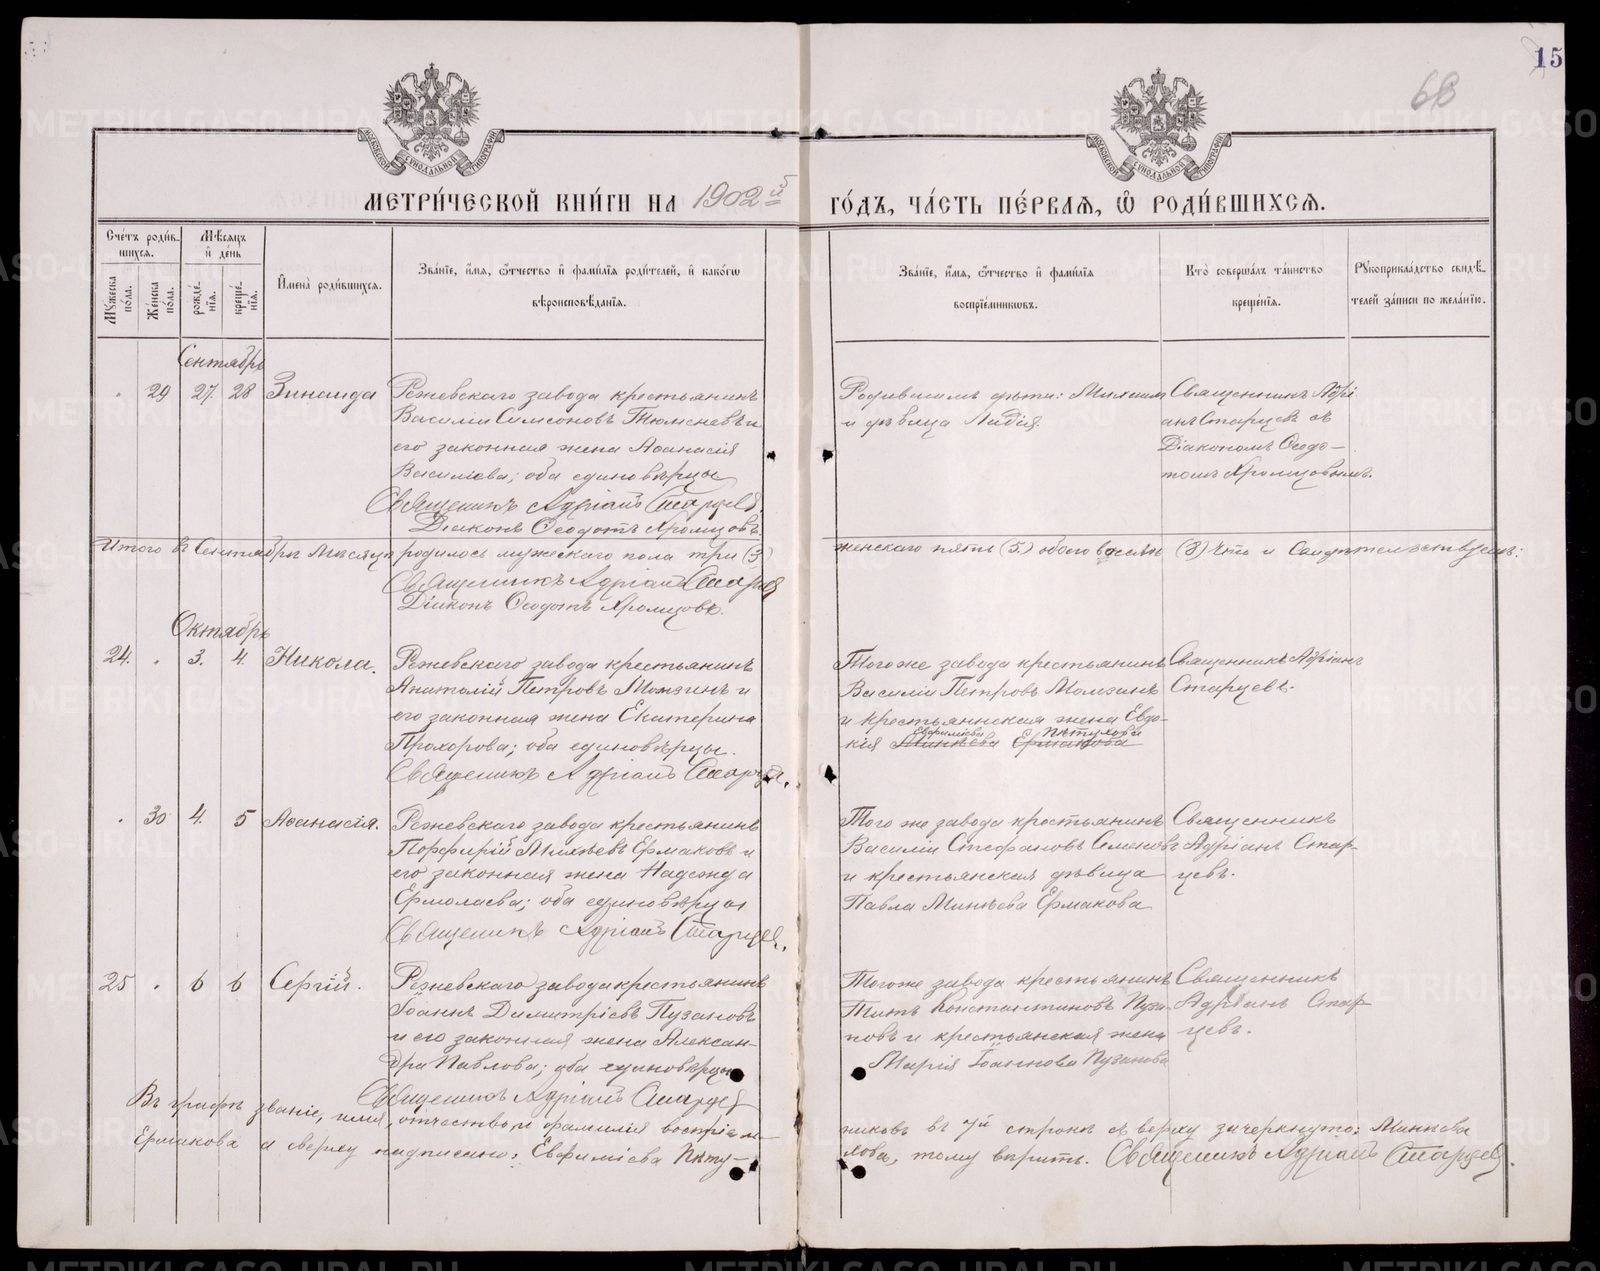 15
68
МОСКОВСКОЙ СѴНОДАЛЬНОЙ ТИПОГРАФІИ
МОСКОВСКОЙ СѴНОДАЛЬНОЙ ТИПОГРАФІИ
МЕТРИ́ЧЕСКОЙ КНИ́ГИ НА 1902й ГО́ДЪ, ЧА́СТЬ ПЕ́РВАЯ, Ѡ РОДИ́ВШИХСЯ.
Сче́тъ роди́в-
шихся.
Му́жеска
по́ла.
Же́нска
по́ла.
Мѣ́сяцъ
и де́нь
рожде́-
нія.
креще́-
нія.
Имена̀ роди́вшихся.
Зва́ніе, и́мя, о́тчество и фами́лія роди́телей, и како́гѡ
вѣроисповѣ́данія.
Зва́ніе, и́мя, о́тчество и фами́лія
воспріе́мниковъ.
Кто̀ соверша́лъ та́инство
креще́нія.
Рукоприкла́дство свидѣ́-
телей за́писи по жела́нію.
Сентябрь
29 27. 28 Зинаида
Режевскаго завода крестьянинъ
Василій Симеоновъ Тюменевъ и
его законная жена Аѳанасія
Василіева; оба единовѣрцы
Священикъ Адріанъ Старцев.
Діаконъ Ѳеодотъ Хромцовъ.
Родившимъ дѣти: Михаил
и дѣвица Лидія.
Священникъ Адрі
анъ Старцевъ съ
Діакономъ Ѳеодо-
томъ Хромцовымъ.
Итого въ Сентябрѣ Мѣсяцѣ родилось мужескаго пола три (3) женскаго пять (5) обоего восемь (8) Что и Свидѣтельствуемъ:
Священикъ Адріанъ Старцев
Діаконъ Ѳеодотъ Хромцовъ.
Октябрь
24. 3. 4. Никола.
Режевскаго завода крестьянинъ
Анатолій Петровъ Момзинъ и
его законная жена Екатерина
Прохорова; оба единовѣрцы.
Священикъ Адріанъ Старцев.
Тогоже завода крестьянинъ
Василій Петровъ Момзинъ
и крестьянская жена Евдо-
Евфиміева Пѣтухова
кія Минѣева Ермакова
Священникъ Адріанъ
Старцевъ.
30 4. 5 Аѳанасія.
Режевскаго завода крестьянинъ
Порфирій Михѣевъ Ермаковъ и
его законная жена Надежда
Ермолаева; оба единовѣрцы
Священикъ Адріанъ Старцев.
Того же завода крестьянинъ
Василій Стефановъ Семеновъ
и крестьянская дѣвица
Павла Минѣева Ермакова
Священникъ
Адріанъ Стар-
цевъ.
25 6 6 Сергій.
Режевскаго завода крестьянинъ
Іоаннъ Димитріевъ Пузановъ
и его законная жена Алексан-
дра Павлова; оба единовѣрцы
Священикъ Адріанъ Старцев
Тогоже завода крестьянинъ
Титъ Константиновъ Пуза-
новъ и крестьянская жена
Марія Іоаннова Пузанова
Священникъ
Адріанъ Стар-
цевъ.
Въ графѣ званіе, имя, отчество и фамилія воспріем-
никовъ въ 7й строкѣ съ верху зачеркнуто: Минѣева
Ермакова и сверху надписано: Евфиміева Пѣту-
хова, тому вѣрить. Священикъ Адріанъ Старцев.
METRIKI.GASO-URAL.RU